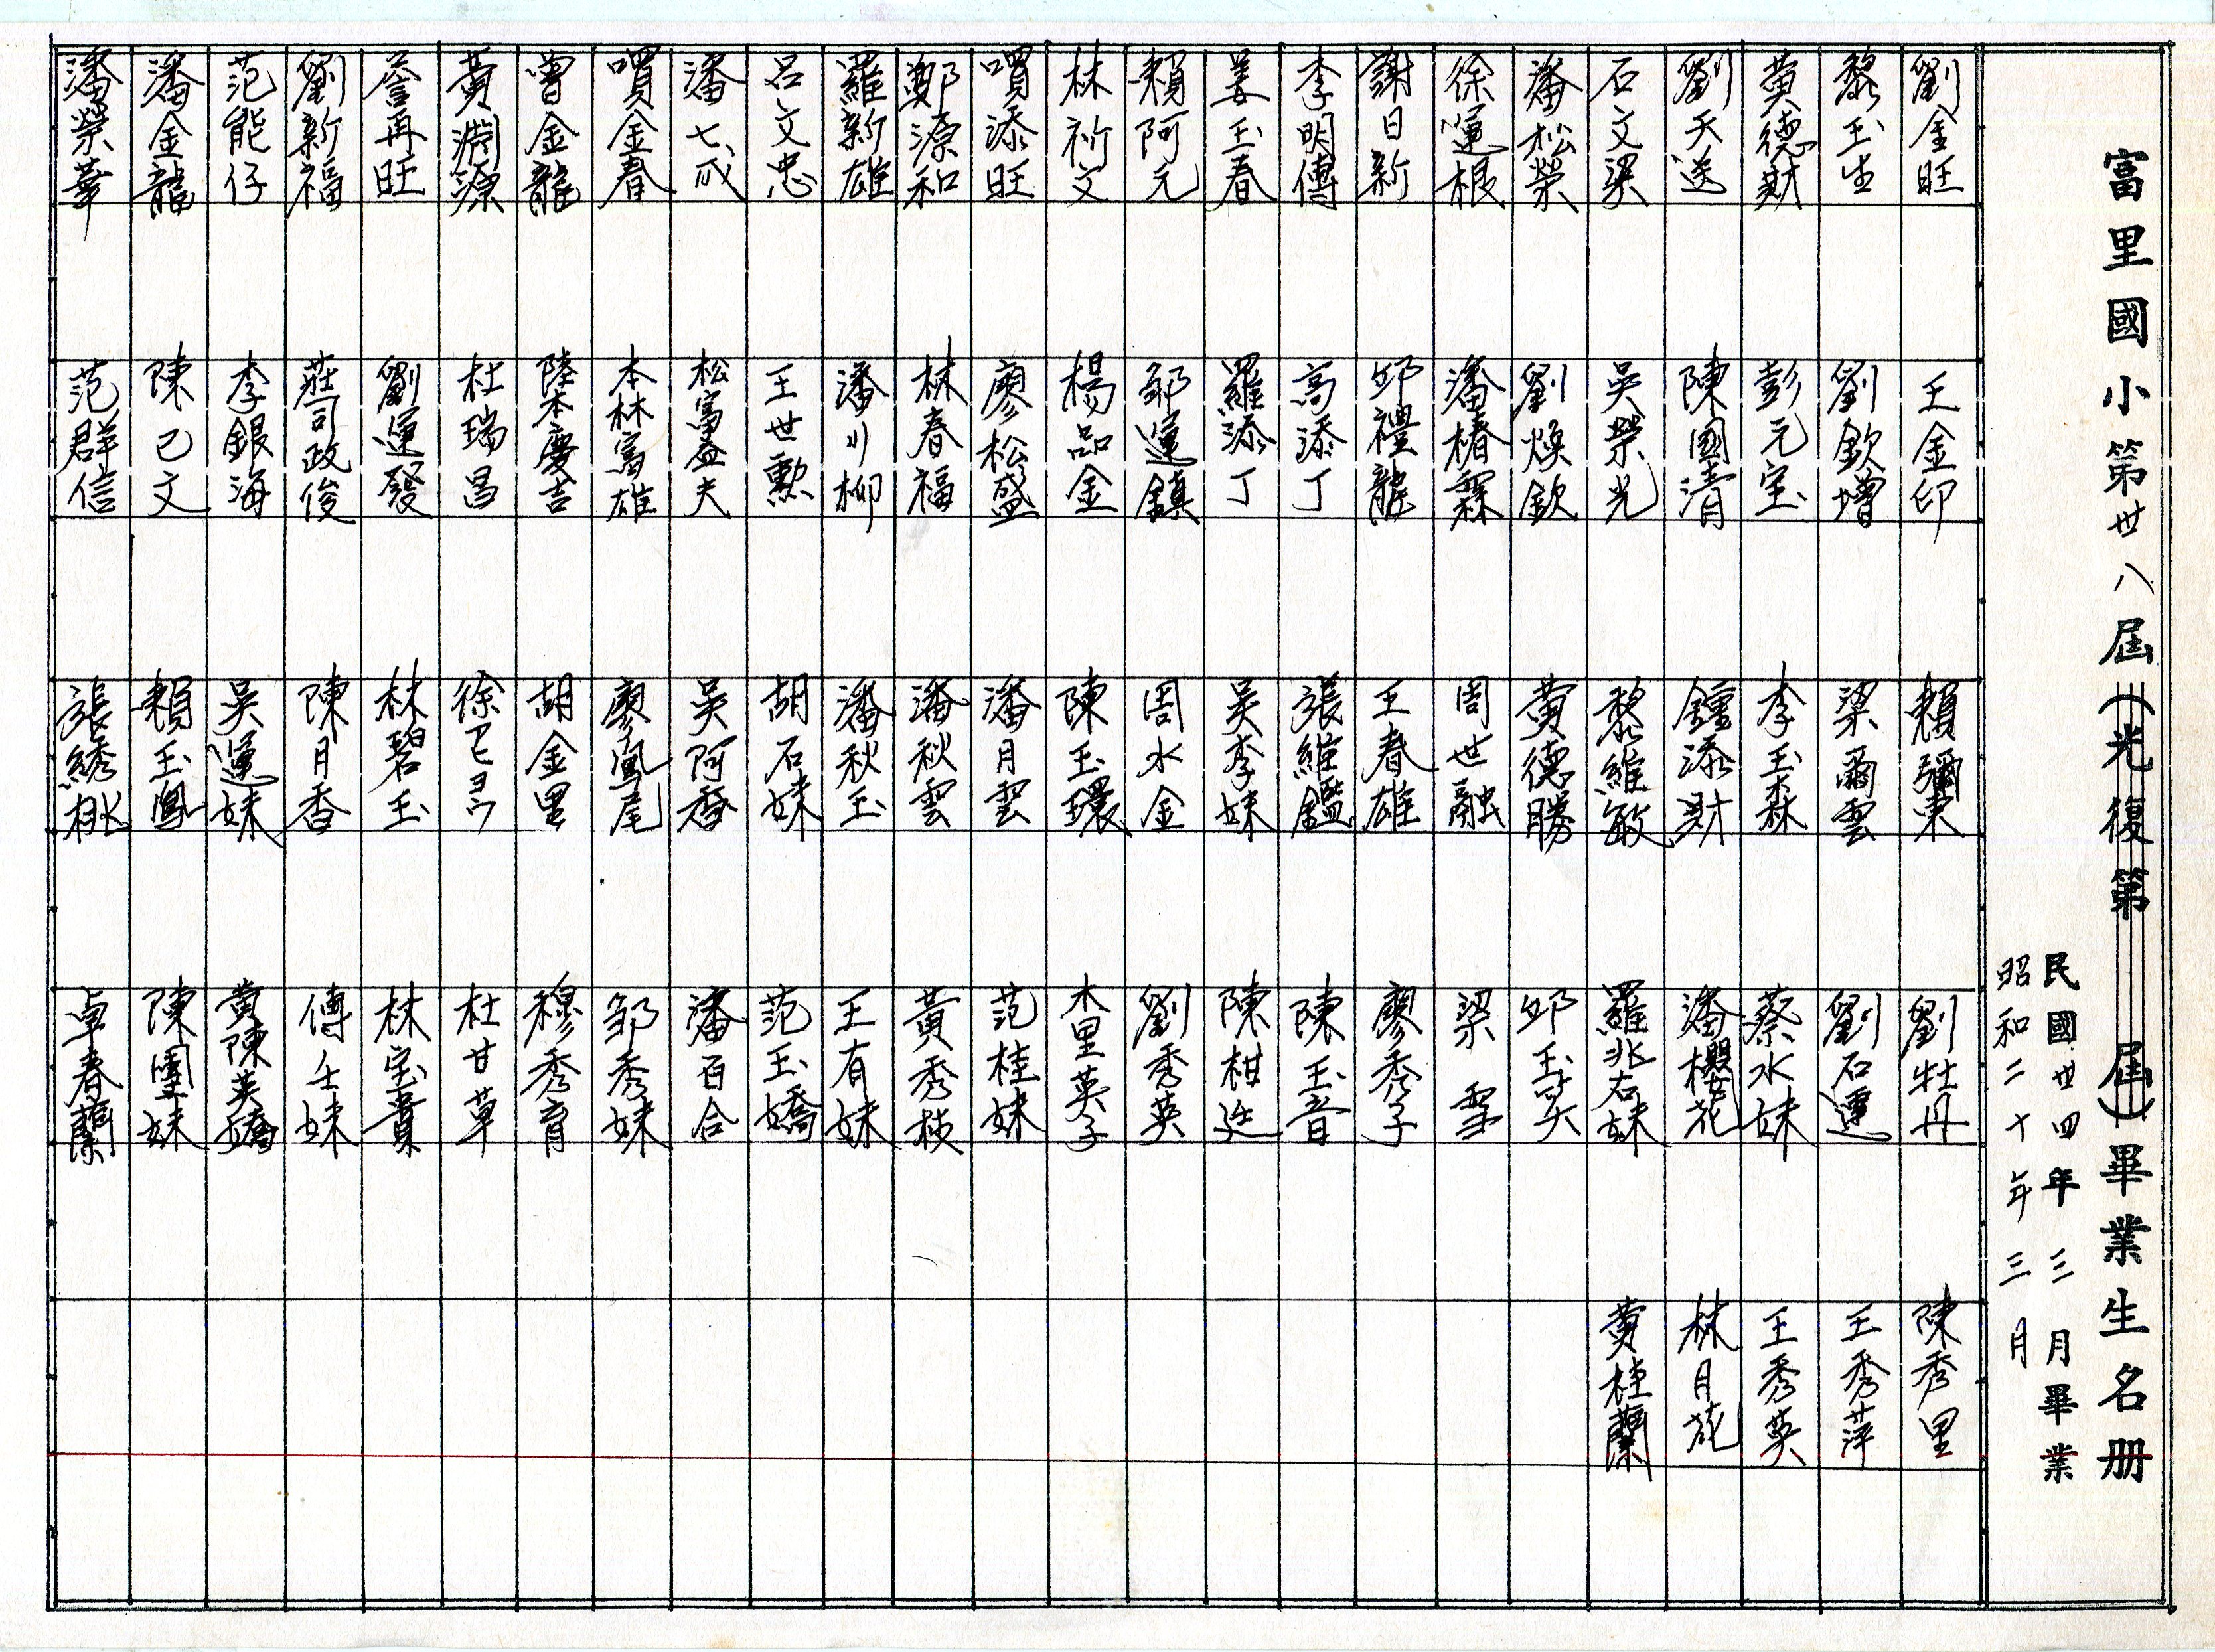 富里國小第廿八屆(光復第 屆)畢業生名册
民國廿四年三月畢業
昭和二十年三月
劉金旺
黎玉生
黃德財
劉天送
石文梁
潘松榮
徐運根
謝日新
李明傳
姜玉春
賴阿元
林祈文
添旺
鄭源和
羅新雄
呂文忠
潘七成
金春
曾金龍
黃淵源
詹再旺
劉新福
范能仔
潘金龍
潘榮華
王金印
劉欽增
彭元宝
陳國清
吳榮光
劉煥欽
潘椿霖
邱禮龍
高添丁
羅添丁
鄒運鎮
楊品金
廖松盛
林春福
潘川柳
王世勲
松富益夫
本林富雄
陸本慶吉
杜瑞昌
劉運發
莊司政俊
李銀海
陳己文
范群信
賴彌東
梁爾雲
李玉森
鍾添財
黎維敏
黃德勝
周世融
王春雄
張維鑑
吳李妹
周水金
陳玉環
潘月雲
潘秋雲
潘秋玉
胡石妹
吳阿香
廖鳳尾
胡金里
徐
林碧玉
陳月香
吳運妹
賴玉鳳
張綉桃
劉牡丹
劉石運
蔡水妹
潘櫻花
羅兆右妹
邱玉英
梁雪
廖秀子
陳玉音
陳柑
劉秀英
木里英子
范桂妹
黃秀枝
王有妹
范玉嬌
潘百合
鄒秀妹
穆秀育
杜甘草
林宝貴
傅壬妹
黃陳英嬌
陳團妹
卓春蘭
陳秀里
王秀萍
王秀英
林月花
黃桂蘭